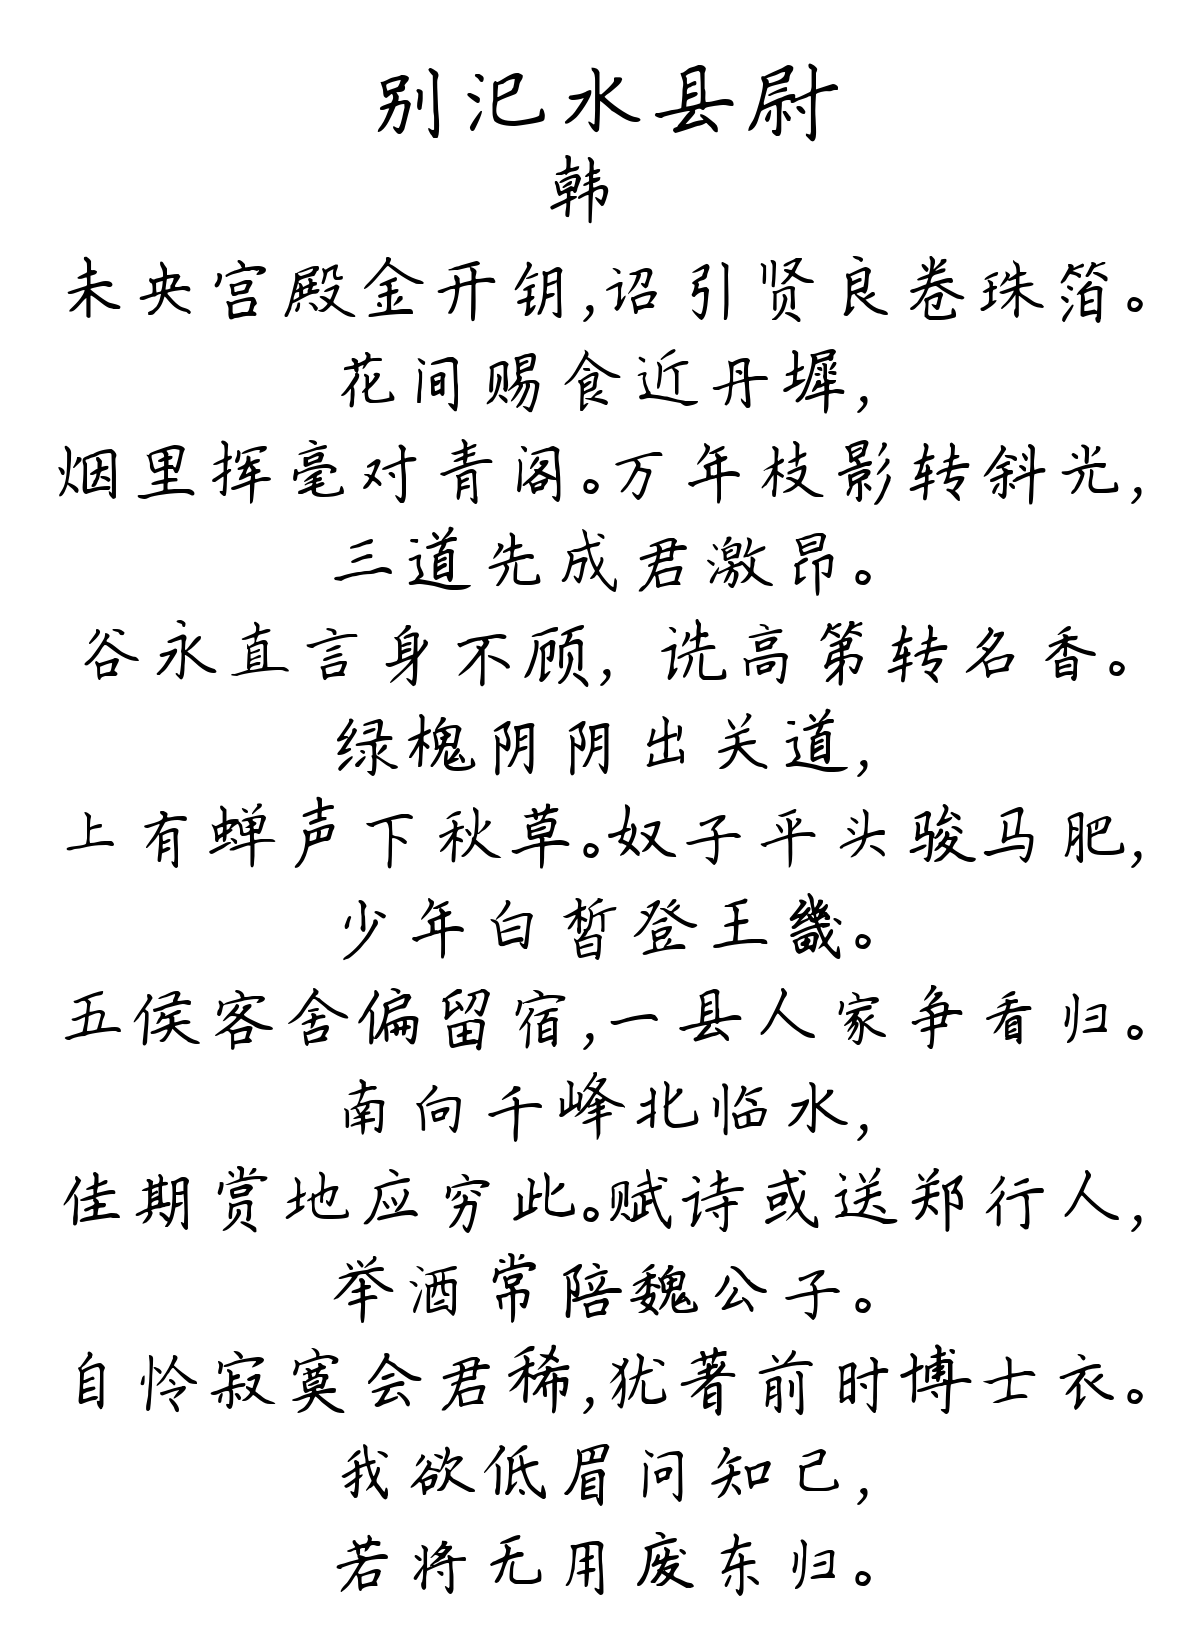 别汜水县尉
韩
未央宫殿金开钥,诏引贤良卷珠箔。
花间赐食近丹墀,
烟里挥毫对青阁。万年枝影转斜光,
三道先成君激昂。
谷永直言身不顾, 诜高第转名香。
绿槐阴阴出关道,
上有蝉声下秋草。奴子平头骏马肥,
少年白皙登王畿。
五侯客舍偏留宿,一县人家争看归。
南向千峰北临水,
佳期赏地应穷此。赋诗或送郑行人,
举酒常陪魏公子。
自怜寂寞会君稀,犹著前时博士衣。
我欲低眉问知己,
若将无用废东归。